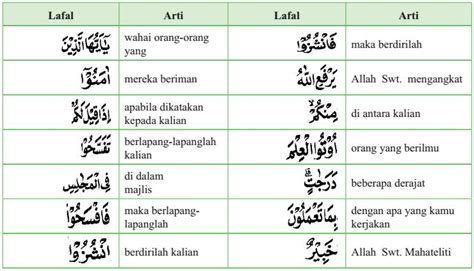 Lafal Arti Lafal Arti
يٰٓاَيُّهَا الَّذِيْنَ wahai orang-orang yang فَانْشُزُوْا maka berdirilah
اٰمَنُوْٓا mereka beriman يَرْفَعِ اللّٰهُ Allah Swt. mengangkat
اِذَا قِيْلَ لَكُمْ apabila dikatakan kepada kalian مِنْكُمْ di antara kalian
تَفَسَّحُوْا berlapang-lapanglah kalian اُوْتُوا الْعِلْمَ orang yang berilmu
فِى الْمَجٰلِسِ di dalam majlis دَرَجٰتٍ beberapa derajat
فَافْسَحُوْا maka berlapang-lapanglah بِمَا تَعْمَلُوْنَ dengan apa yang kamu kerjakan
انْشُزُوْا berdirilah kalian خَبِيْرٌ Allah Swt. Mahateliti